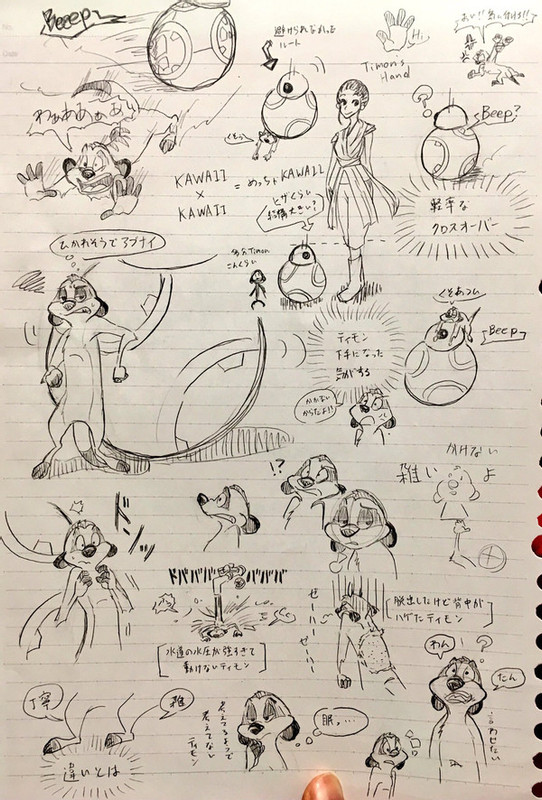 Beeep~
避けられなかった
ルート
Hi,
Timon's
Hand
おい!!気を付けろ!!
わぁぁあぁぁあぃ
くそぅ
Beep?
KAWAII
×
KAWAII
=めっちゃKAWAII
ヒザくらい
結構大きい?
軽率な
クロスオーバー
ひかれそうでアブナイ
多分Timon
こんくらい
ティモン
下手になった
気がする
くそあつい
Beep
かかない
からだよ!?
かけない
雑いよ
!?
ドンッ
ドババババババババ
水道の水圧が強すぎて
動けないティモン
ぜーハー
ぜーハー
脱出したけど背中が
ハゲたティモン
わん
?
たん
言わせたい
丁寧
雑
違いとは
考えてるようで
考えてない
ティモン
眠,…